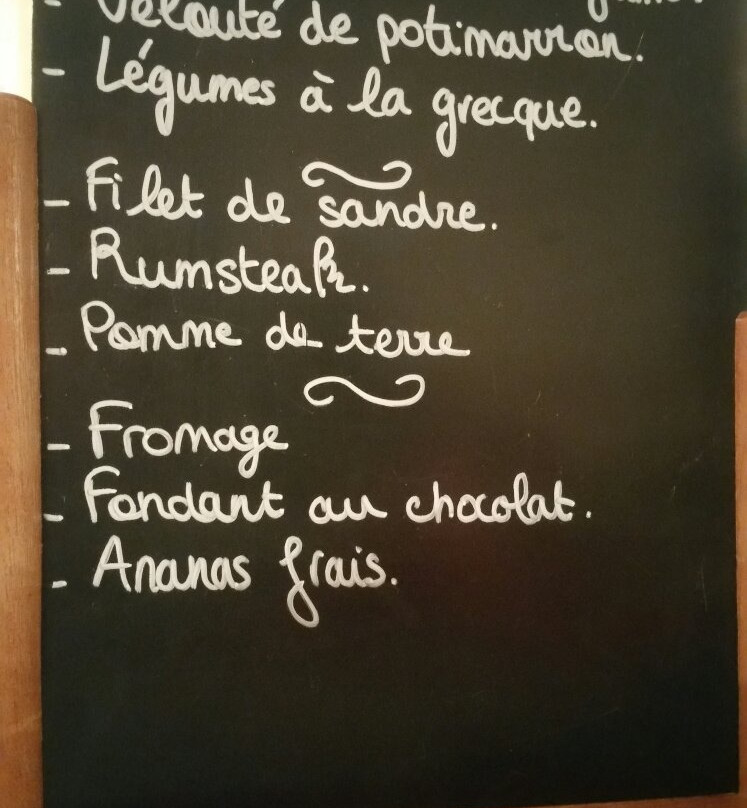 - Velouté de potimarron.
- Légumes à la grecque.
- Filet de sandre.
- Rumsteak.
- Pomme de terre
- Fromage
- Fondant au chocolat.
- Ananas frais.